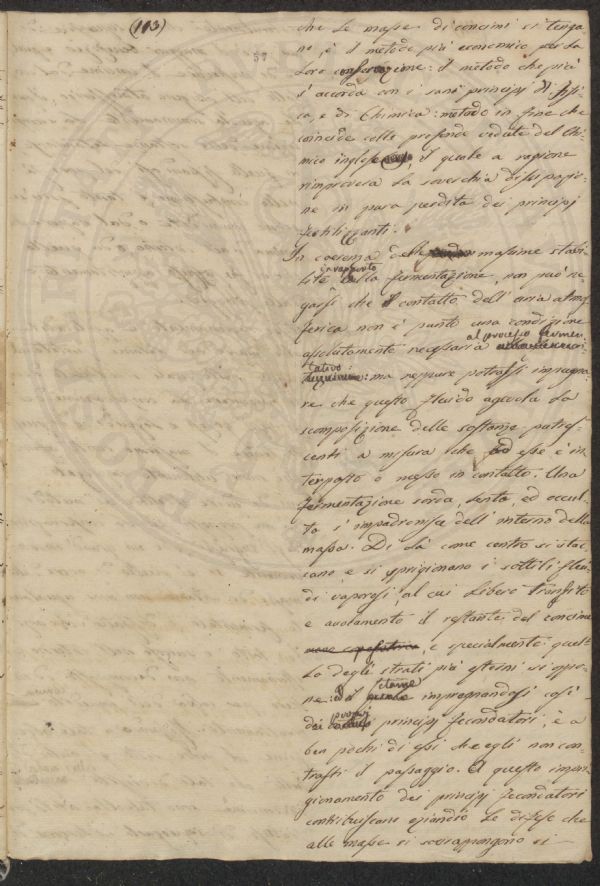 (113)
57
che le masse di concimi si tenga
no è il metodo più economico per la
loro conservazione: il metodo che più
s'accorda con i sani principj di Fisi-
ca, e di Chimica: metodo in fine che
coincide colle profonde vedute del Chi
mico inglese, il quale a ragione
rimprovera la soverchia dissipazio-
ne in pura perdita dei principj
fertilizzanti.
In coerenza delle massime stabi-
lite in rapporto alla fermentazione, non può ne
garsi che il contatto dell'aria atmos
ferica non è punto una condizione
assolutamente necessaria al processo fermen
tativo: ma neppure potrassi impugna-
re che questo fluido agevola la
scomposizione delle sostanze putres-
centi a misura che ad esse è in
terposto o messo in contatto. Una
fermentazione sorda, lenta, ed occul-
ta s'impadronisce dell'interno della
massa. Di là come centro si stac-
cano e si sprigionano i sottili flui-
di vaporosi, al cui libero transito
e il restante del concime
e specialmente quel-
lo degli strati più esterni si oppo-
ne: ed il letame impregnandosi così
dei proprj principj fecondatori, è a
ben pochi di essi che egli non con-
trasti il passaggio. A questo impri-
gionamento dei principj fecondatori
contribuiscono eziandio le difese che
alle masse si sovrappongono si